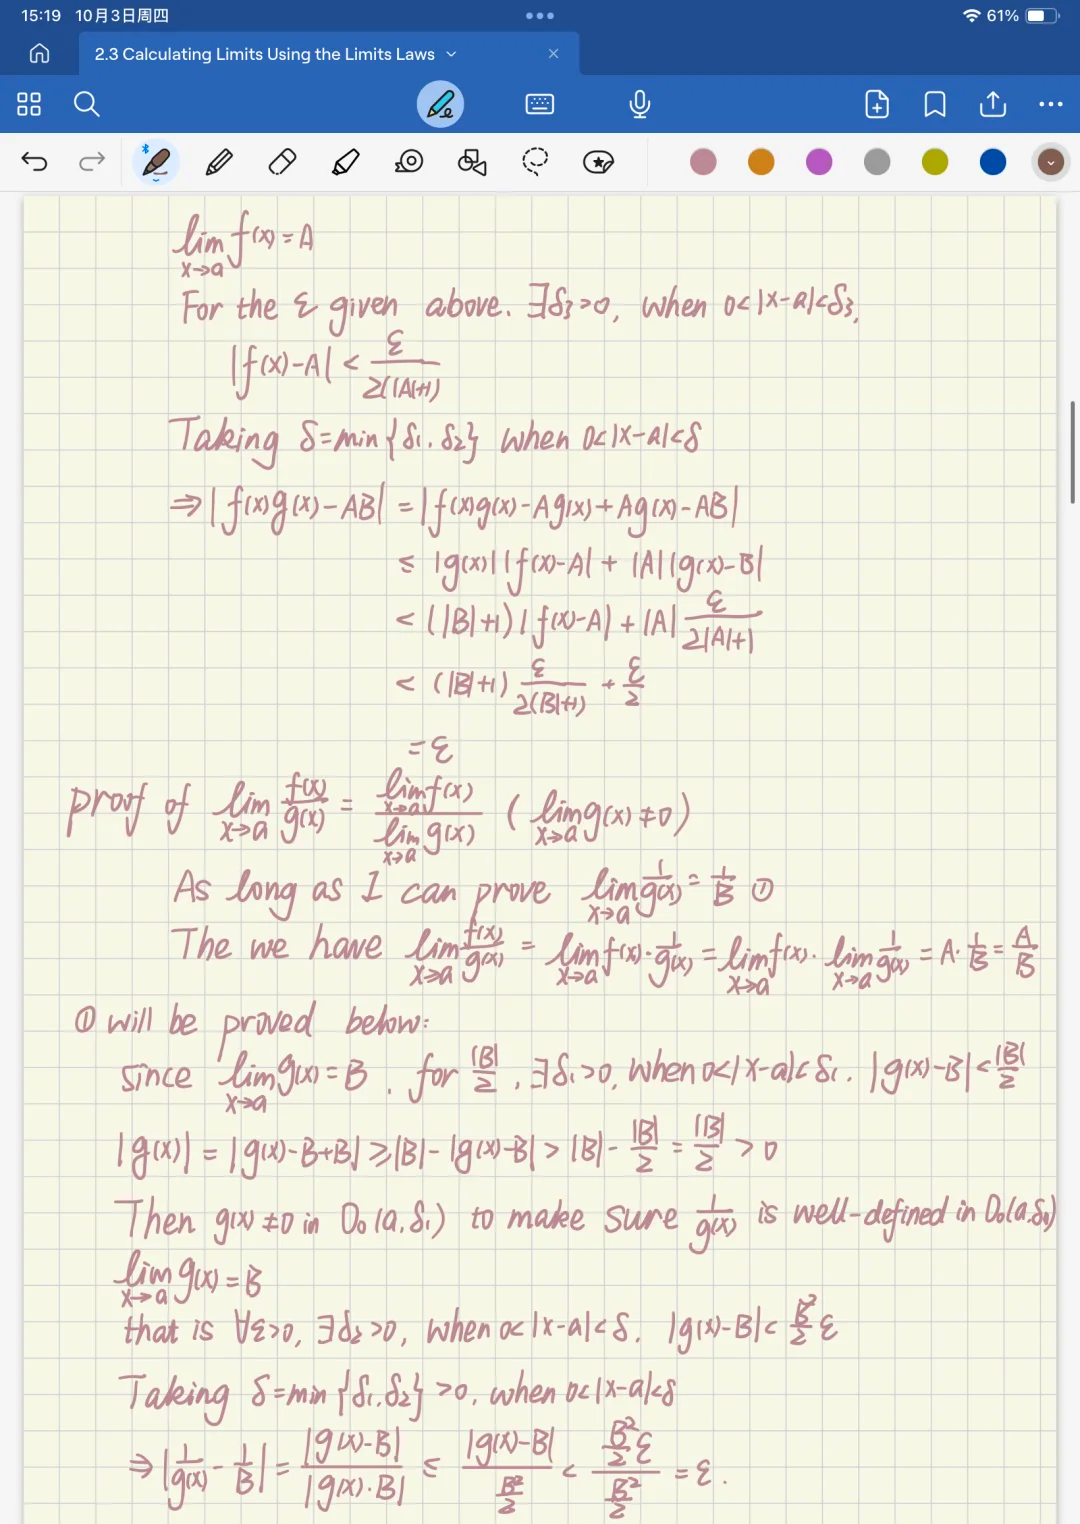 15:19 10月3日周四
61%
2.3 Calculating Limits Using the Limits Laws
lim_{x→a} f(x) = A
For the ε given above. ∃δ₃>0, when 0<|x-a|<δ₃,
|f(x)-A| < ε/(2(|A|+1))
Taking δ=min{δ₁, δ₂} when 0<|x-a|<δ
⇒ |f(x)g(x)-AB| = |f(x)g(x)-Ag(x)+Ag(x)-AB|
≤ |g(x)||f(x)-A| + |A||g(x)-B|
< (|B|+1)|f(x)-A| + |A| ε/(2|A|+1)
< (|B|+1) ε/(2(|B|+1)) + ε/2
= ε
proof of lim_{x→a} f(x)/g(x) = lim_{x→a} f(x) / lim_{x→a} g(x) (lim_{x→a} g(x) ≠ 0)
As long as I can prove lim_{x→a} 1/g(x) = 1/B ①
The we have lim_{x→a} f(x)/g(x) = lim_{x→a} f(x)·1/g(x) = lim_{x→a} f(x)·lim_{x→a} 1/g(x) = A·1/B = A/B
① will be proved below:
since lim_{x→a} g(x) = B, for |B|/2, ∃δ₁>0, when 0<|x-a|<δ₁. |g(x)-B|<|B|/2
|g(x)| = |g(x)-B+B| ≥ |B|-|g(x)-B| > |B|-|B|/2 = |B|/2 > 0
Then g(x)≠0 in D₀(a,δ₁) to make sure 1/g(x) is well-defined in D₀(a,δ₁)
lim_{x→a} g(x) = B
that is ∀ε>0, ∃δ₂>0, when 0<|x-a|<δ. |g(x)-B|< B²/2 ε
Taking δ=min{δ₁,δ₂}>0, when 0<|x-a|<δ
⇒ |1/g(x) - 1/B| = |g(x)-B|/|g(x)·B| ≤ |g(x)-B|/(B²/2) < (B²/2 ε)/(B²/2) = ε.